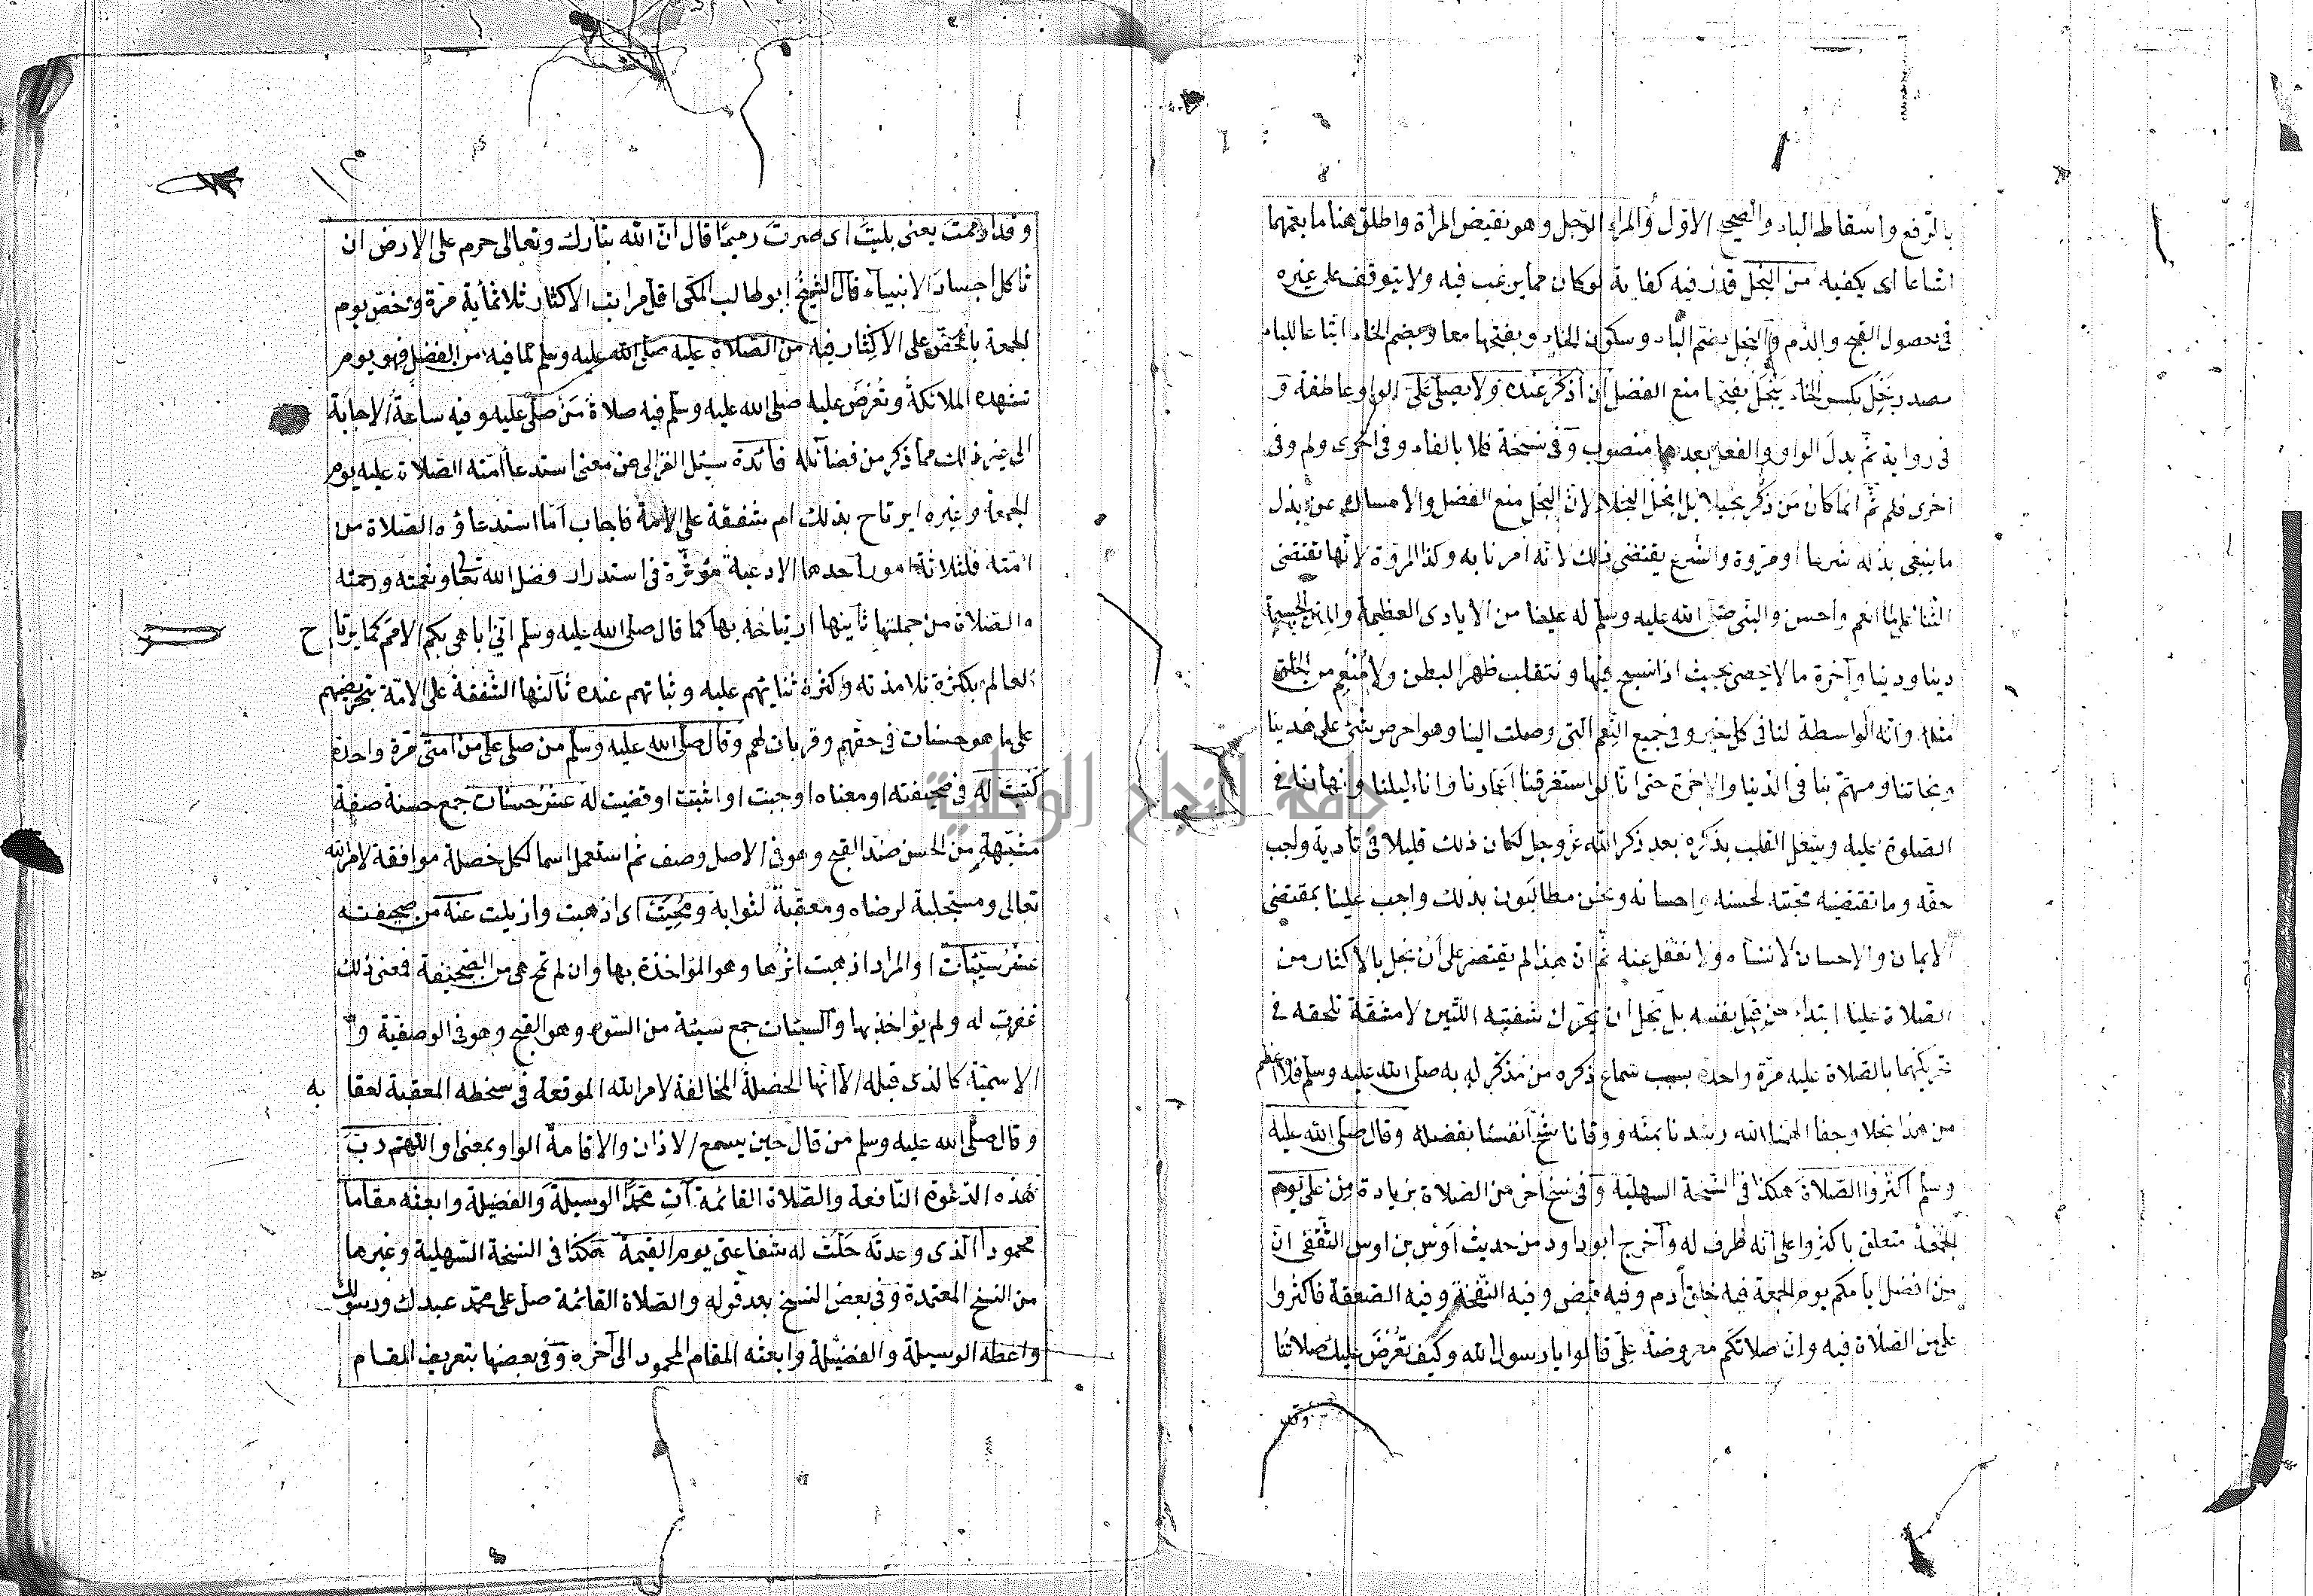 بالرفع واسقاط الباء والصحيح الاول والمراد الرجل وهو نقيض المرأة واطلق هنا ما يعمهما
اشاعا اى يكفيه من البخل قدر فيه كفاية لو كان مما يرغب فيه ولا يتوقف على غيره
فى حصول القبح والذم والبخل بضم الباء وسكون الخاء وبفتحهما معا وبضم الخاء اتباعا للباء
مصدر بخل بكسر الخاء يبخل بفتحها منع الفضل ان أذكر عنده ولا يصلى على الواو عاطفة و
فى رواية ثم بدل الواو والفعل بعدها منصوب وفى نسخة فلا بالفاء وفى اخرى ولم وفى
اخرى فلم ثم انما كان من ذكر بخيلا بل ابخل البخلاء لان البخل منع الفضل والامساك عن بذل
ما ينبغى بذله شرعا او مروة والشرع يقتضى ذلك لانه امرنا به وكذا المروة لانها تقتضى
الثناء على من انعم واحسن والنبى صلى الله عليه وسلم له علينا من الايادى العظيمة والمنن الجسيمة
دينا ودنيا وآخرة ما لا يحصى بحيث اذا نسبح فيها ونتقلب ظهرا لبطن ولا منعم من الخلق
مثله وانه الواسطة لنا فى كل خير وفى جميع النعم التى وصلت الينا وهو احرص شئ على هدينا
ونجاتنا ومهتم بنا فى الدنيا والاخرة حتى انا لو استغرقنا اعمارنا وآناء ليلنا ونهارنا فى
الصلوة عليه وشغل القلب بذكره بعد ذكر الله عز وجل لكان ذلك قليلا فى تأدية واجب
حقه وما تقتضيه محبته لحسنه واحسانه ونحن مطالبون بذلك واجب علينا بمقتضى
الايمان والاحسان لا ننساه ولا نغفل عنه ثم ان هذا لم يقتصر على أن بخل بالاكثار من
الصلاة علينا ابتداء من قبل نفسه بل بخل ان يحرك شفتيه اللتين لا مشقة تلحقه فى
تحريكهما بالصلاة عليه مرة واحدة بسبب سماع ذكره من مذكر له به صلى الله عليه وسلم فلا اعظم
من هذا بخلا وجفا الهمنا الله رشدنا بمنه ووقانا شح أنفسنا بفضله وقال صلى الله عليه
وسلم أكثروا الصلاة هكذا فى النسخة السهلية وفى نسخ اخر من الصلاة بزيادة من على يوم
الجمعة متعلق باكثروا على انه ظرف له وأخرج ابو داود من حديث أوس بن اوس الثقفى ان
من افضل ايامكم يوم الجمعة فيه خلق أدم وفيه قبض وفيه النفخة وفيه الصعقة فاكثروا
على من الصلاة فيه وان صلاتكم معروضة على قالوا يا رسول الله وكيف تعرض عليك صلاتنا
وقد
وقد ارممت يعنى بليت اى صرت رميما قال ان الله تبارك وتعالى حرم على الارض ان
تاكل اجساد الانبياء قال الشيخ ابو طالب المكى اقل مراتب الاكثار ثلاثمأية مرة وتخص يوم
الجمعة بالحض على الاكثار فيه من الصلاة عليه صلى الله عليه وسلم لما فيه من الفضل فهو يوم
تشهده الملائكة وتعرض عليه صلى الله عليه وسلم فيه صلاة من صلى عليه وفيه ساعة الاجابة
الى غير ذلك مما ذكر من فضائله فائدة سئل الغزالى عن معنى استدعا امته الصلاة عليه يوم
الجمعة وغيره ايرتاح بذلك ام شفقة على الامة فاجاب أما استدعاؤه الصلاة من
امته فلثلاثة امور أحدها الادعية مؤثرة فى استدرار فضل الله تعا ونعمته ورحمته
والصلاة من جملتها ثانيها ارتياحه بها كما قال صلى الله عليه وسلم انى اباهى بكم الامم كما يرتاح
العالم بكثرة تلامذته وكثرة ثنايتهم عليه وثباتهم عنده ثالثها الشفقة على الامة بتحريضهم
على ما هو حسنات فى حقهم وقربات لهم وقال صلى الله عليه وسلم من صلى على من امتى مرة واحدة
كتبت له فى صحيفته او معناه اوجبت او اثبتت او قضيت له عشر حسنات جمع حسنة صفة
مشبهة من الحسن ضد القبح وهو فى الاصل وصف ثم استعمل اسما لكل خصلة موافقة لامر الله
تعالى ومستجلبة لرضاه ومعقبة لثوابه ومحيت اى اذهبت وازيلت عنه من صحيفته
عشر سيئات والمراد اذهبت اثرها وهو المؤاخذة بها وان لم تمح هى من الصحيفة فمعنى ذلك
غفرت له ولم يؤاخذ بها والسيئات جمع سيئة من السوء وهو القبح وهو فى الوصفية و
الاسمية كالذى قبله الا انها الخصلة المخالفة لامر الله الموقعة فى سخطه المعقبة لعقابه
وقال صلى الله عليه وسلم من قال حين يسمع الاذان والاقامة الواو بمعنى او اللهم رب
هذه الدعوة النافعة والصلاة القائمة آت محمدا الوسيلة والفضيلة وابعثه مقاما
محمودا الذى وعدته حلت له شفاعتى يوم القيمة هكذا فى النسخة السهلية وغيرها
من النسخ المعتمدة وفى بعض النسخ بعد قوله والصلاة القائمة صل على محمد عبدك ورسولك
واعطه الوسيلة والفضيلة وابعثه المقام المحمود الى آخره وفى بعضها بتعريف المقام
جامعة النجاح الوطنية